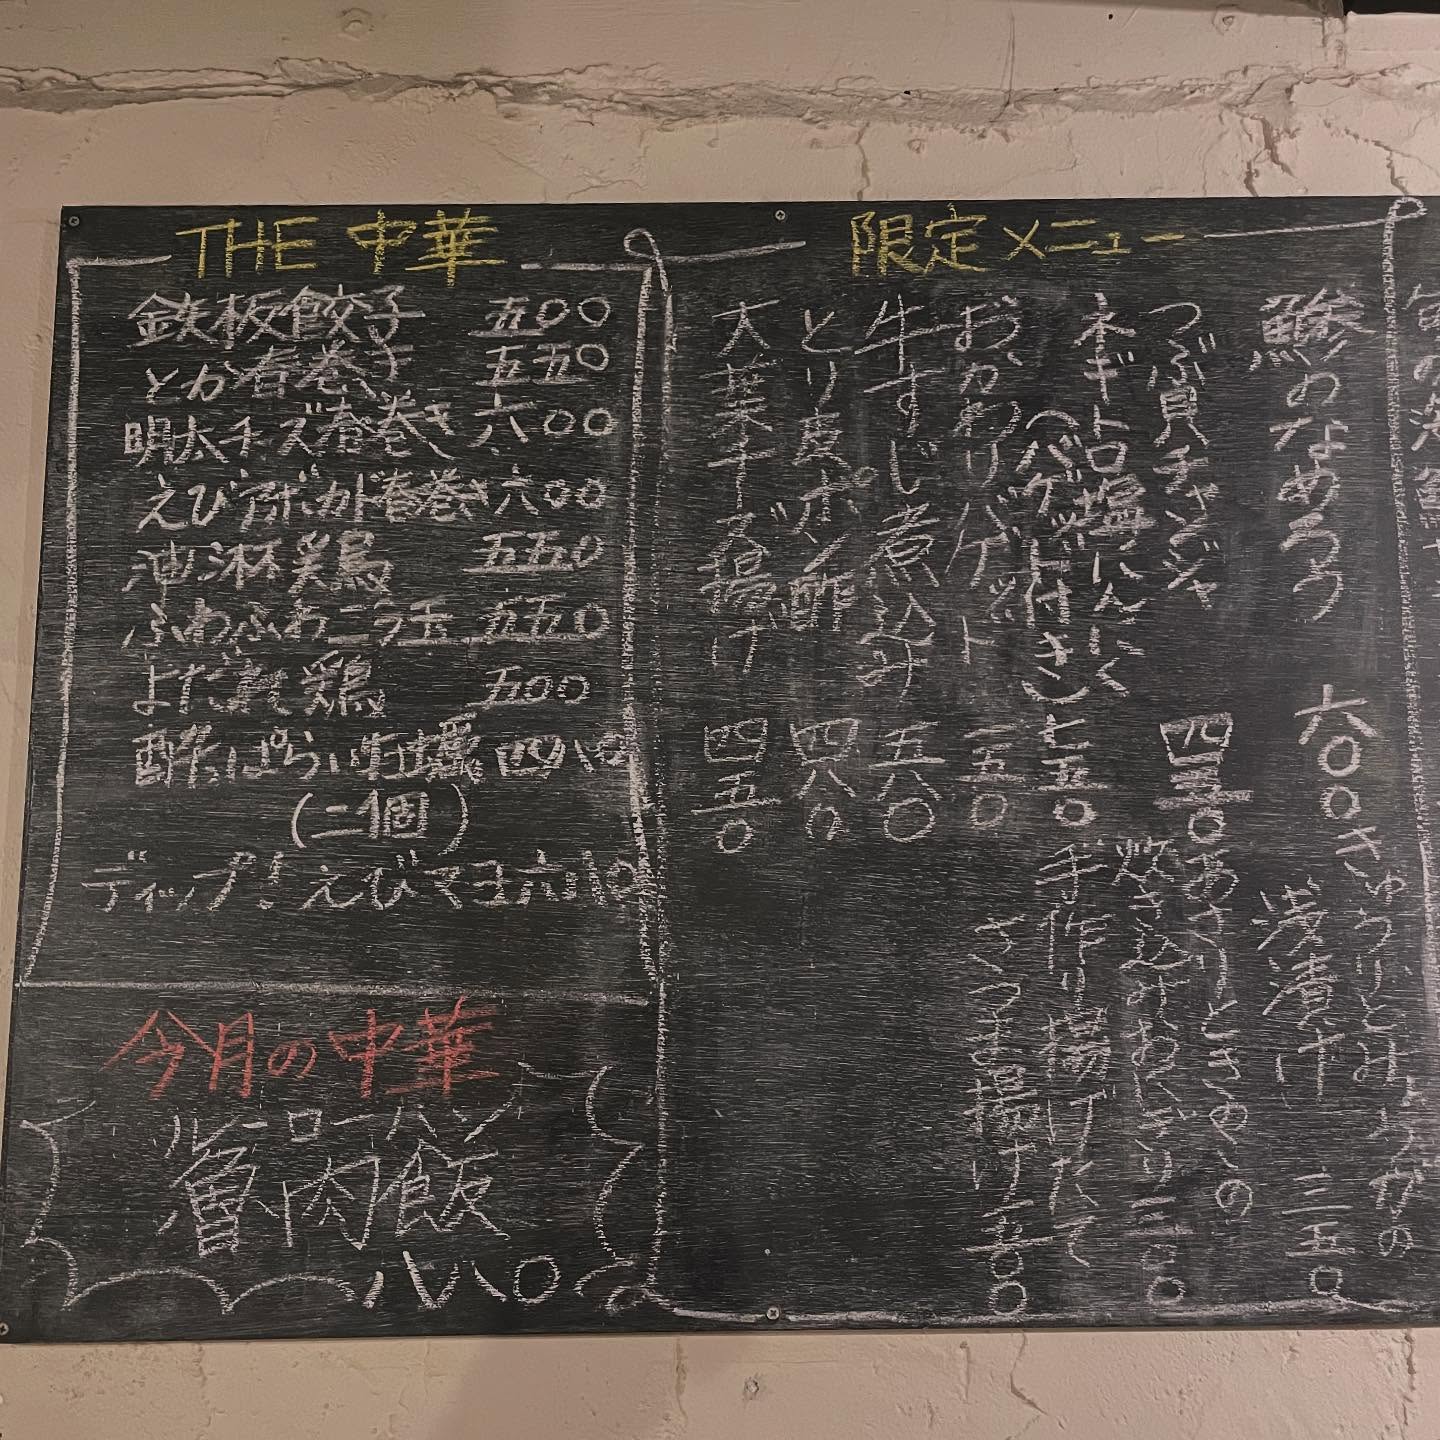 THE 中華
鉄板餃子 五〇〇
とか春巻き 五五〇
明太チーズ春巻き 六〇〇
えびアボカド春巻き 六〇〇
油淋鶏 五五〇
ふわふわニラ玉 五五〇
よだれ鶏 五〇〇
酔っぱらい牡蠣 四八〇
(二個)
ディップ!えびマヨ 六八〇
今月の中華
ルーローハン
魯肉飯
八八〇
限定メニュー
鯵のなめろう 六〇〇
つぶ貝チャンジャ 四五〇
ネギトロ塩にんにく
(バゲット付き) 七五〇
おかわりバゲット 一五〇
牛すじ煮込み 五八〇
とり皮ポン酢 四八〇
大葉チーズ揚げ 四五〇
きゅうりとみょうがの
浅漬け 三五〇
あさりときのこの
炊き込みおにぎり
手作り揚げたて
さつま揚げ